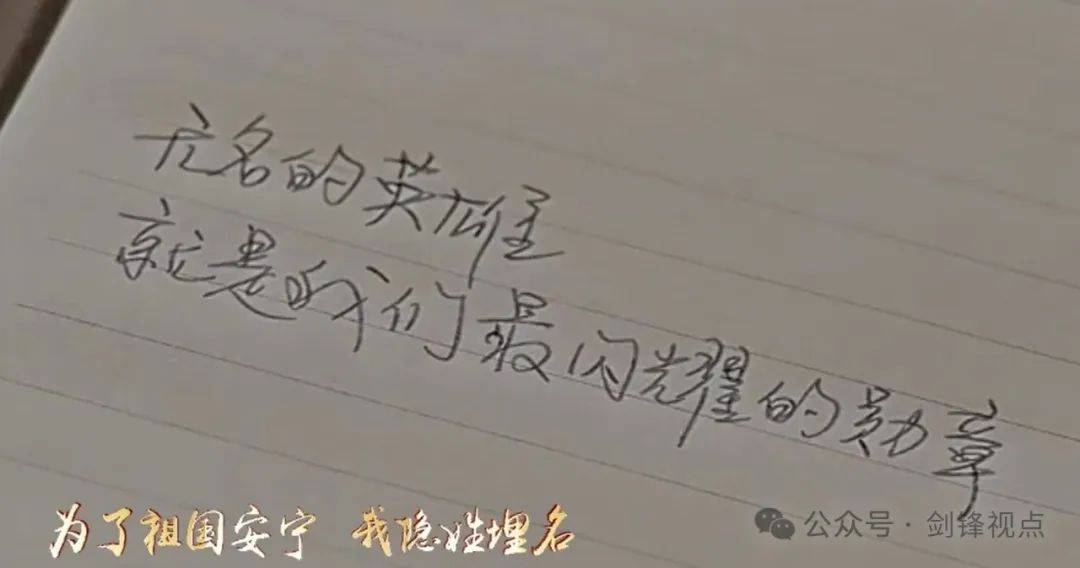 无名的英雄
就是我们最闪耀的勋章
为了祖国安宁 我隐姓埋名
公众号·剑锋视点